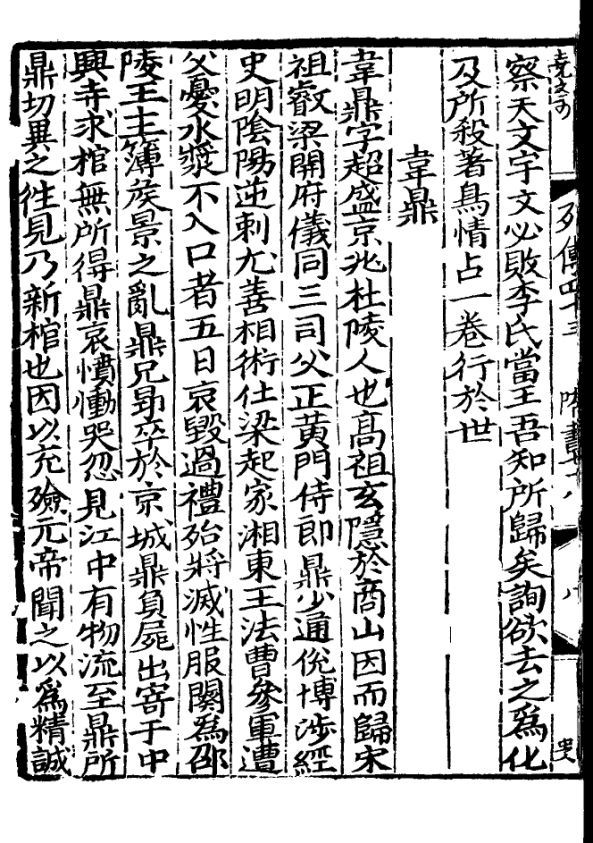 列傳四十三　隋書七十八　八
察天文宇文必敗李氏當王吾知所歸矣詢欲去之爲化
及所殺著鳥情占一卷行於世
韋鼎
韋鼎字超盛京兆杜陵人也高祖玄隱於商山因而歸宋
祖叡梁開府儀同三司父正黃門侍郎鼎少通侻博涉經
史明陰陽逆刺尤善相術仕梁起家湘東王法曹參軍遭
父憂水漿不入口者五日哀毀過禮殆將滅性服闋爲邵
陵王主簿侯景之亂鼎兄昂卒於京城鼎負屍出寄于中
興寺求棺無所得鼎哀憤慟哭忽見江中有物流至鼎所
鼎切異之往見乃新棺也因以充殮元帝聞之以爲精誠